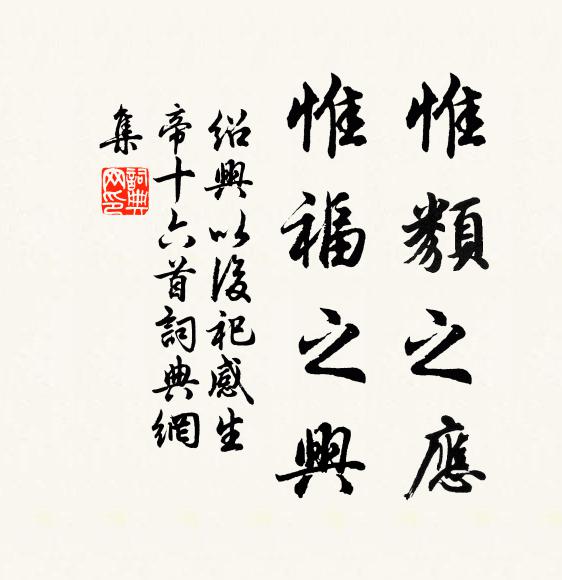 惟類之應
惟福之興
紹興以後祀感生
帝十六首詞典網
集
詞典
网印